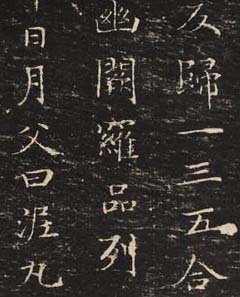 反歸一三五合
幽闕羅品列
日月父曰泥丸